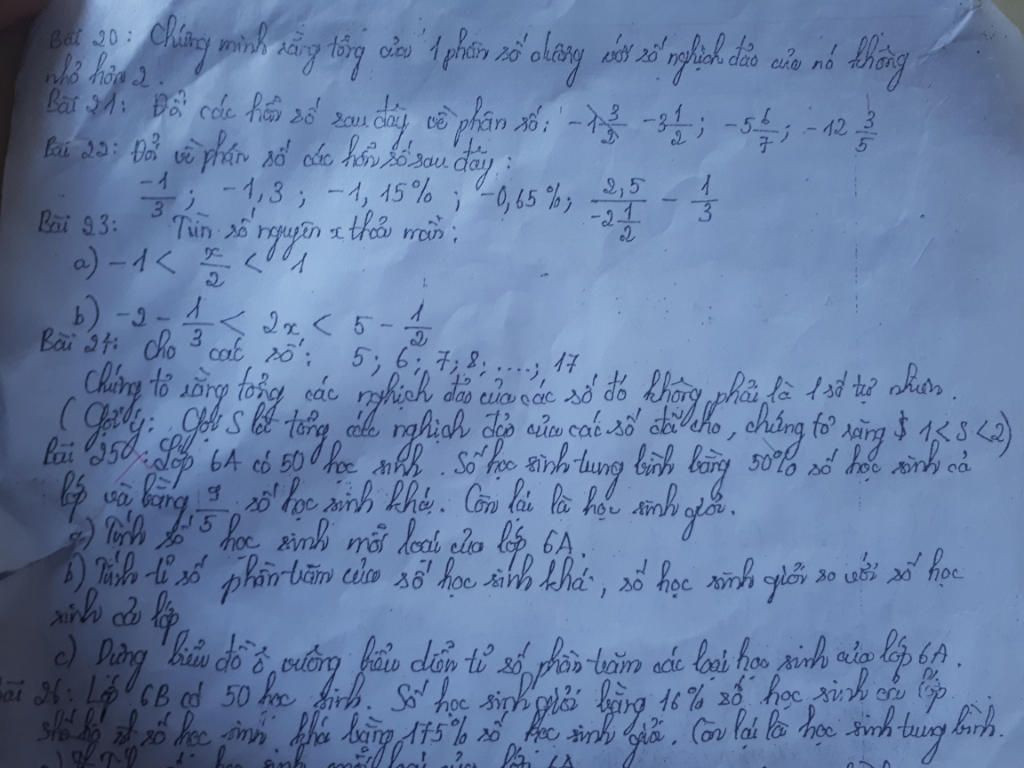 Bài 20: Chứng minh rằng tổng của 1 phân số dương với số nghịch đảo của nó không
nhỏ hơn 2.
Bài 21: Đổi các hỗn số sau đây về phân số: -1 3/2 -3 1/2; -5 6/7; -12 3/5
Bài 22: Đổi về phân số các hỗn số sau đây:
-1/3; -1,3; -1,15%; -0,65%; 2,5/(-2 1/2) - 1/3
Bài 23: Tìm số nguyên x thỏa mãn:
a) -1 < x/2 < 1
b) -2 - 1/3 < 2x < 5 - 1/2
Bài 24: Cho các số: 5; 6; 7; 8; ....; 17
Chứng tỏ rằng tổng các nghịch đảo của các số đó không phải là 1 số tự nhiên.
(Gợi ý: Gọi S là tổng các nghịch đảo của các số đã cho, chứng tỏ rằng 1 < S < 2)
Bài 25: Lớp 6A có 50 học sinh. Số học sinh tung bình bằng 50% số học sinh cả
lớp và bằng 9/5 số học sinh khá. Còn lại là học sinh giỏi.
a) Tính số học sinh mỗi loại của lớp 6A.
b) Tính tỉ số phần trăm của số học sinh khá, số học sinh giỏi so với số học
sinh cả lớp
c) Dựng biểu đồ ô vuông biểu diễn tỉ số phần trăm các loại học sinh của lớp 6A.
Bài 26: Lớp 6B có 50 học sinh. Số học sinh giỏi bằng 16% số học sinh cả lớp
số học sinh khá bằng 175% số học sinh giỏi. Còn lại là học sinh tung bình.
học sinh mỗi loại của lớp 6A